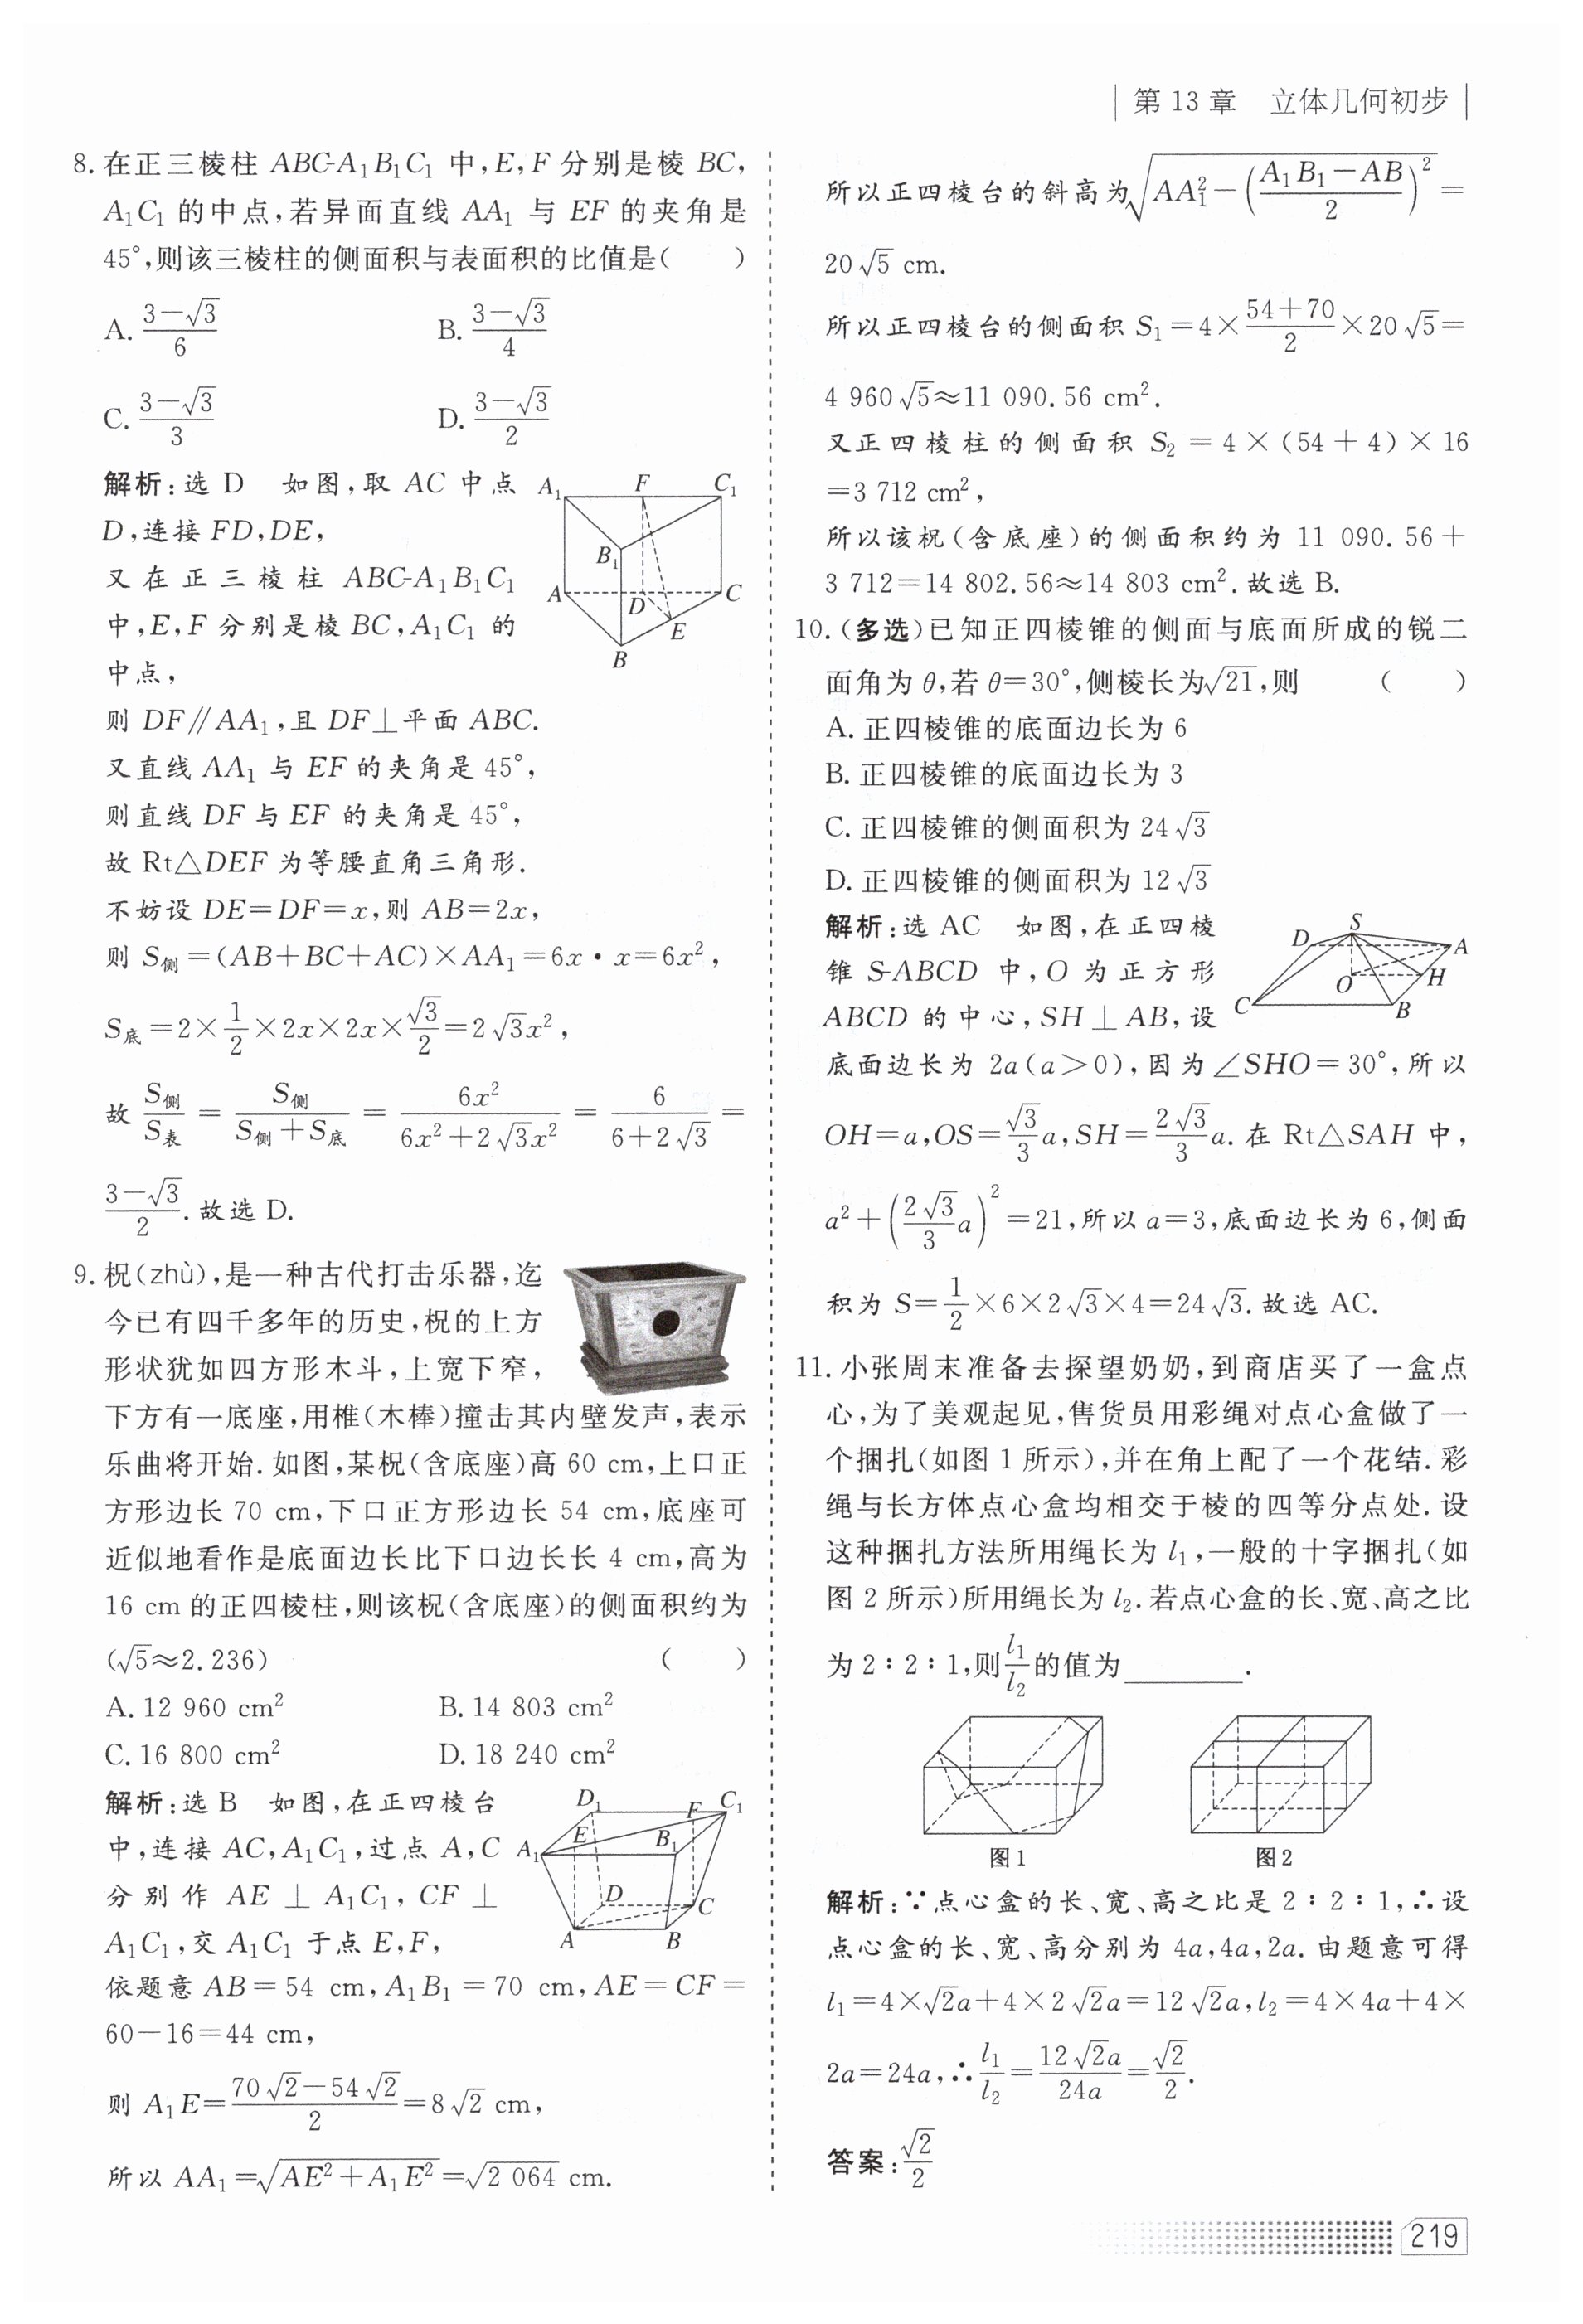 第 13 章　立体几何初步
8. 在正三棱柱 ABC-A₁B₁C₁ 中,E,F 分别是棱 BC,
A₁C₁ 的中点,若异面直线 AA₁ 与 EF 的夹角是
45°,则该三棱柱的侧面积与表面积的比值是(　　)
A. (3-√3)/6　B. (3-√3)/4
C. (3-√3)/3　D. (3-√3)/2
解析:选 D　如图,取 AC 中点
D,连接 FD,DE,
又在正三棱柱 ABC-A₁B₁C₁
中,E,F 分别是棱 BC,A₁C₁ 的
中点,
A₁ F C₁
B₁
A D C
E
B
则 DF∥AA₁,且 DF⊥平面 ABC.
又直线 AA₁ 与 EF 的夹角是 45°,
则直线 DF 与 EF 的夹角是 45°,
故 Rt△DEF 为等腰直角三角形.
不妨设 DE=DF=x,则 AB=2x,
则 S侧=(AB+BC+AC)×AA₁=6x·x=6x²,
S底=2×1/2×2x×2x×√3/2=2√3x²,
故 S侧/S表=S侧/(S侧+S底)=6x²/(6x²+2√3x²)=6/(6+2√3)=
(3-√3)/2.故选 D.
9. 柷(zhù),是一种古代打击乐器,迄
今已有四千多年的历史,柷的上方
形状犹如四方形木斗,上宽下窄,
下方有一底座,用椎(木棒)撞击其内壁发声,表示
乐曲将开始.如图,某柷(含底座)高 60 cm,上口正
方形边长 70 cm,下口正方形边长 54 cm,底座可
近似地看作是底面边长比下口边长长 4 cm,高为
16 cm 的正四棱柱,则该柷(含底座)的侧面积约为
(√5≈2.236)　(　　)
A. 12 960 cm²　B. 14 803 cm²
C. 16 800 cm²　D. 18 240 cm²
解析:选 B　如图,在正四棱台
中,连接 AC,A₁C₁,过点 A,C
分别作 AE⊥A₁C₁,CF⊥
A₁C₁,交 A₁C₁ 于点 E,F,
D₁ F C₁
E B₁
A₁
D C
A B
依题意 AB=54 cm,A₁B₁=70 cm,AE=CF=
60-16=44 cm,
则 A₁E=(70√2-54√2)/2=8√2 cm,
所以 AA₁=√(AE²+A₁E²)=√(2 064) cm.
所以正四棱台的斜高为√(AA₁²-((A₁B₁-AB)/2)²)=
20√5 cm.
所以正四棱台的侧面积 S₁=4×(54+70)/2×20√5=
4 960√5≈11 090.56 cm².
又正四棱柱的侧面积 S₂=4×(54+4)×16
=3 712 cm²,
所以该柷(含底座)的侧面积约为 11 090.56+
3 712=14 802.56≈14 803 cm².故选 B.
10. (多选)已知正四棱锥的侧面与底面所成的锐二
面角为 θ,若 θ=30°,侧棱长为√21,则　(　　)
A. 正四棱锥的底面边长为 6
B. 正四棱锥的底面边长为 3
C. 正四棱锥的侧面积为 24√3
D. 正四棱锥的侧面积为 12√3
解析:选 AC　如图,在正四棱
锥 S-ABCD 中,O 为正方形
ABCD 的中心,SH⊥AB,设
S
D A
O H
C B
底面边长为 2a(a>0),因为∠SHO=30°,所以
OH=a,OS=√3/3 a,SH=2√3/3 a.在 Rt△SAH 中,
a²+(2√3/3 a)²=21,所以 a=3,底面边长为 6,侧面
积为 S=1/2×6×2√3×4=24√3.故选 AC.
11. 小张周末准备去探望奶奶,到商店买了一盒点
心,为了美观起见,售货员用彩绳对点心盒做了一
个捆扎(如图 1 所示),并在角上配了一个花结.彩
绳与长方体点心盒均相交于棱的四等分点处.设
这种捆扎方法所用绳长为 l₁,一般的十字捆扎(如
图 2 所示)所用绳长为 l₂.若点心盒的长、宽、高之比
为 2∶2∶1,则 l₁/l₂ 的值为________.
图1　图2
解析:∵点心盒的长、宽、高之比是 2∶2∶1,∴设
点心盒的长、宽、高分别为 4a,4a,2a.由题意可得
l₁=4×√2a+4×2√2a=12√2a,l₂=4×4a+4×
2a=24a,∴l₁/l₂=12√2a/24a=√2/2.
答案:√2/2
219